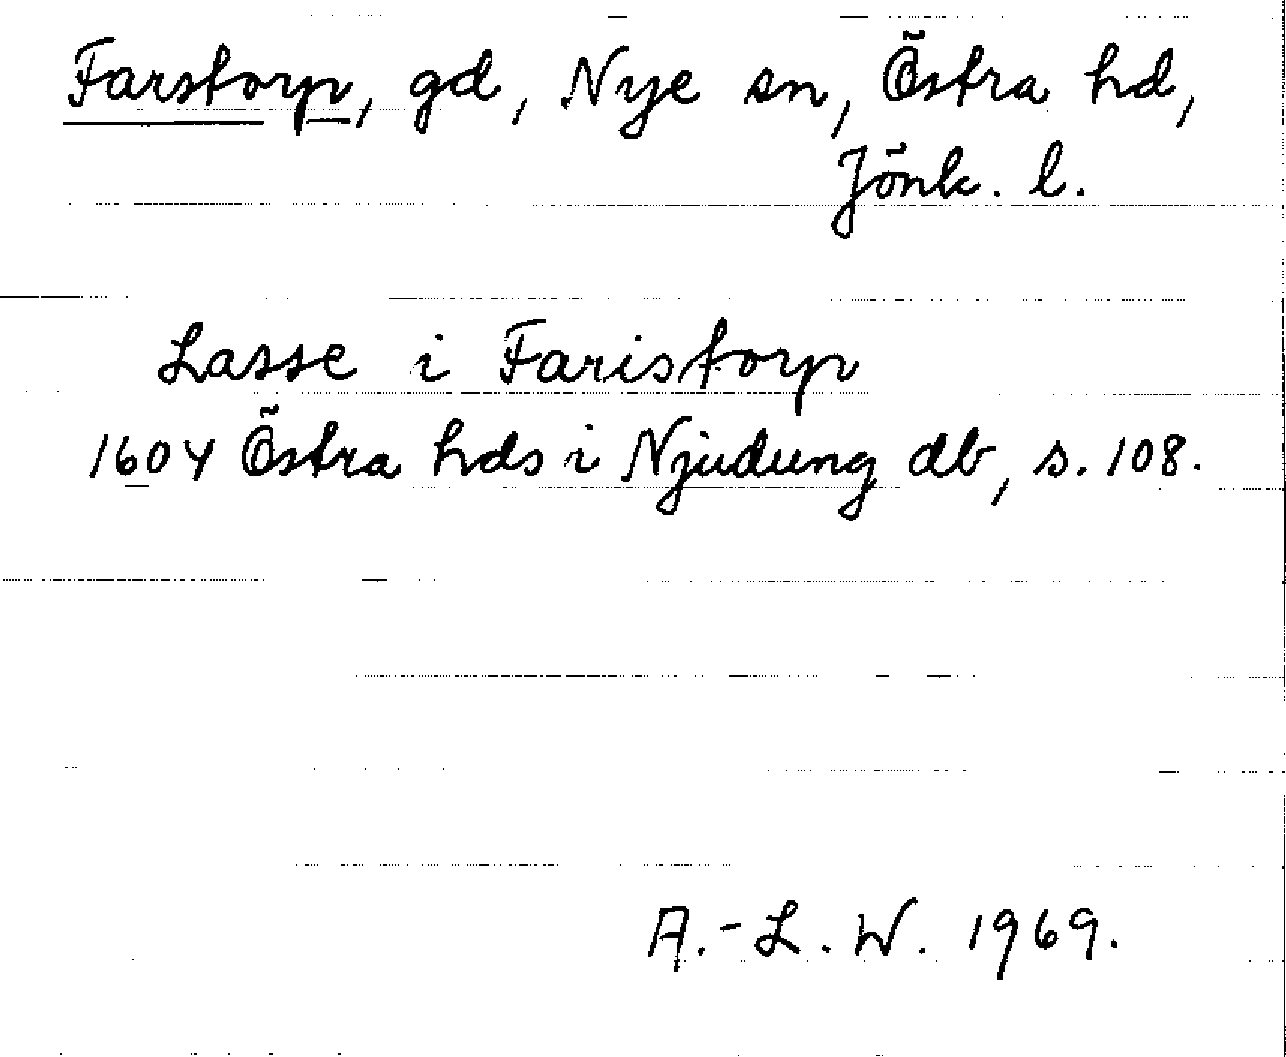 Farstorp, gd, Nye sn, Östra hd,
Jönk. l.
Lasse i Faristorp
1604 Östra hds i Njudung db, s. 108.
A.-L. W. 1969.